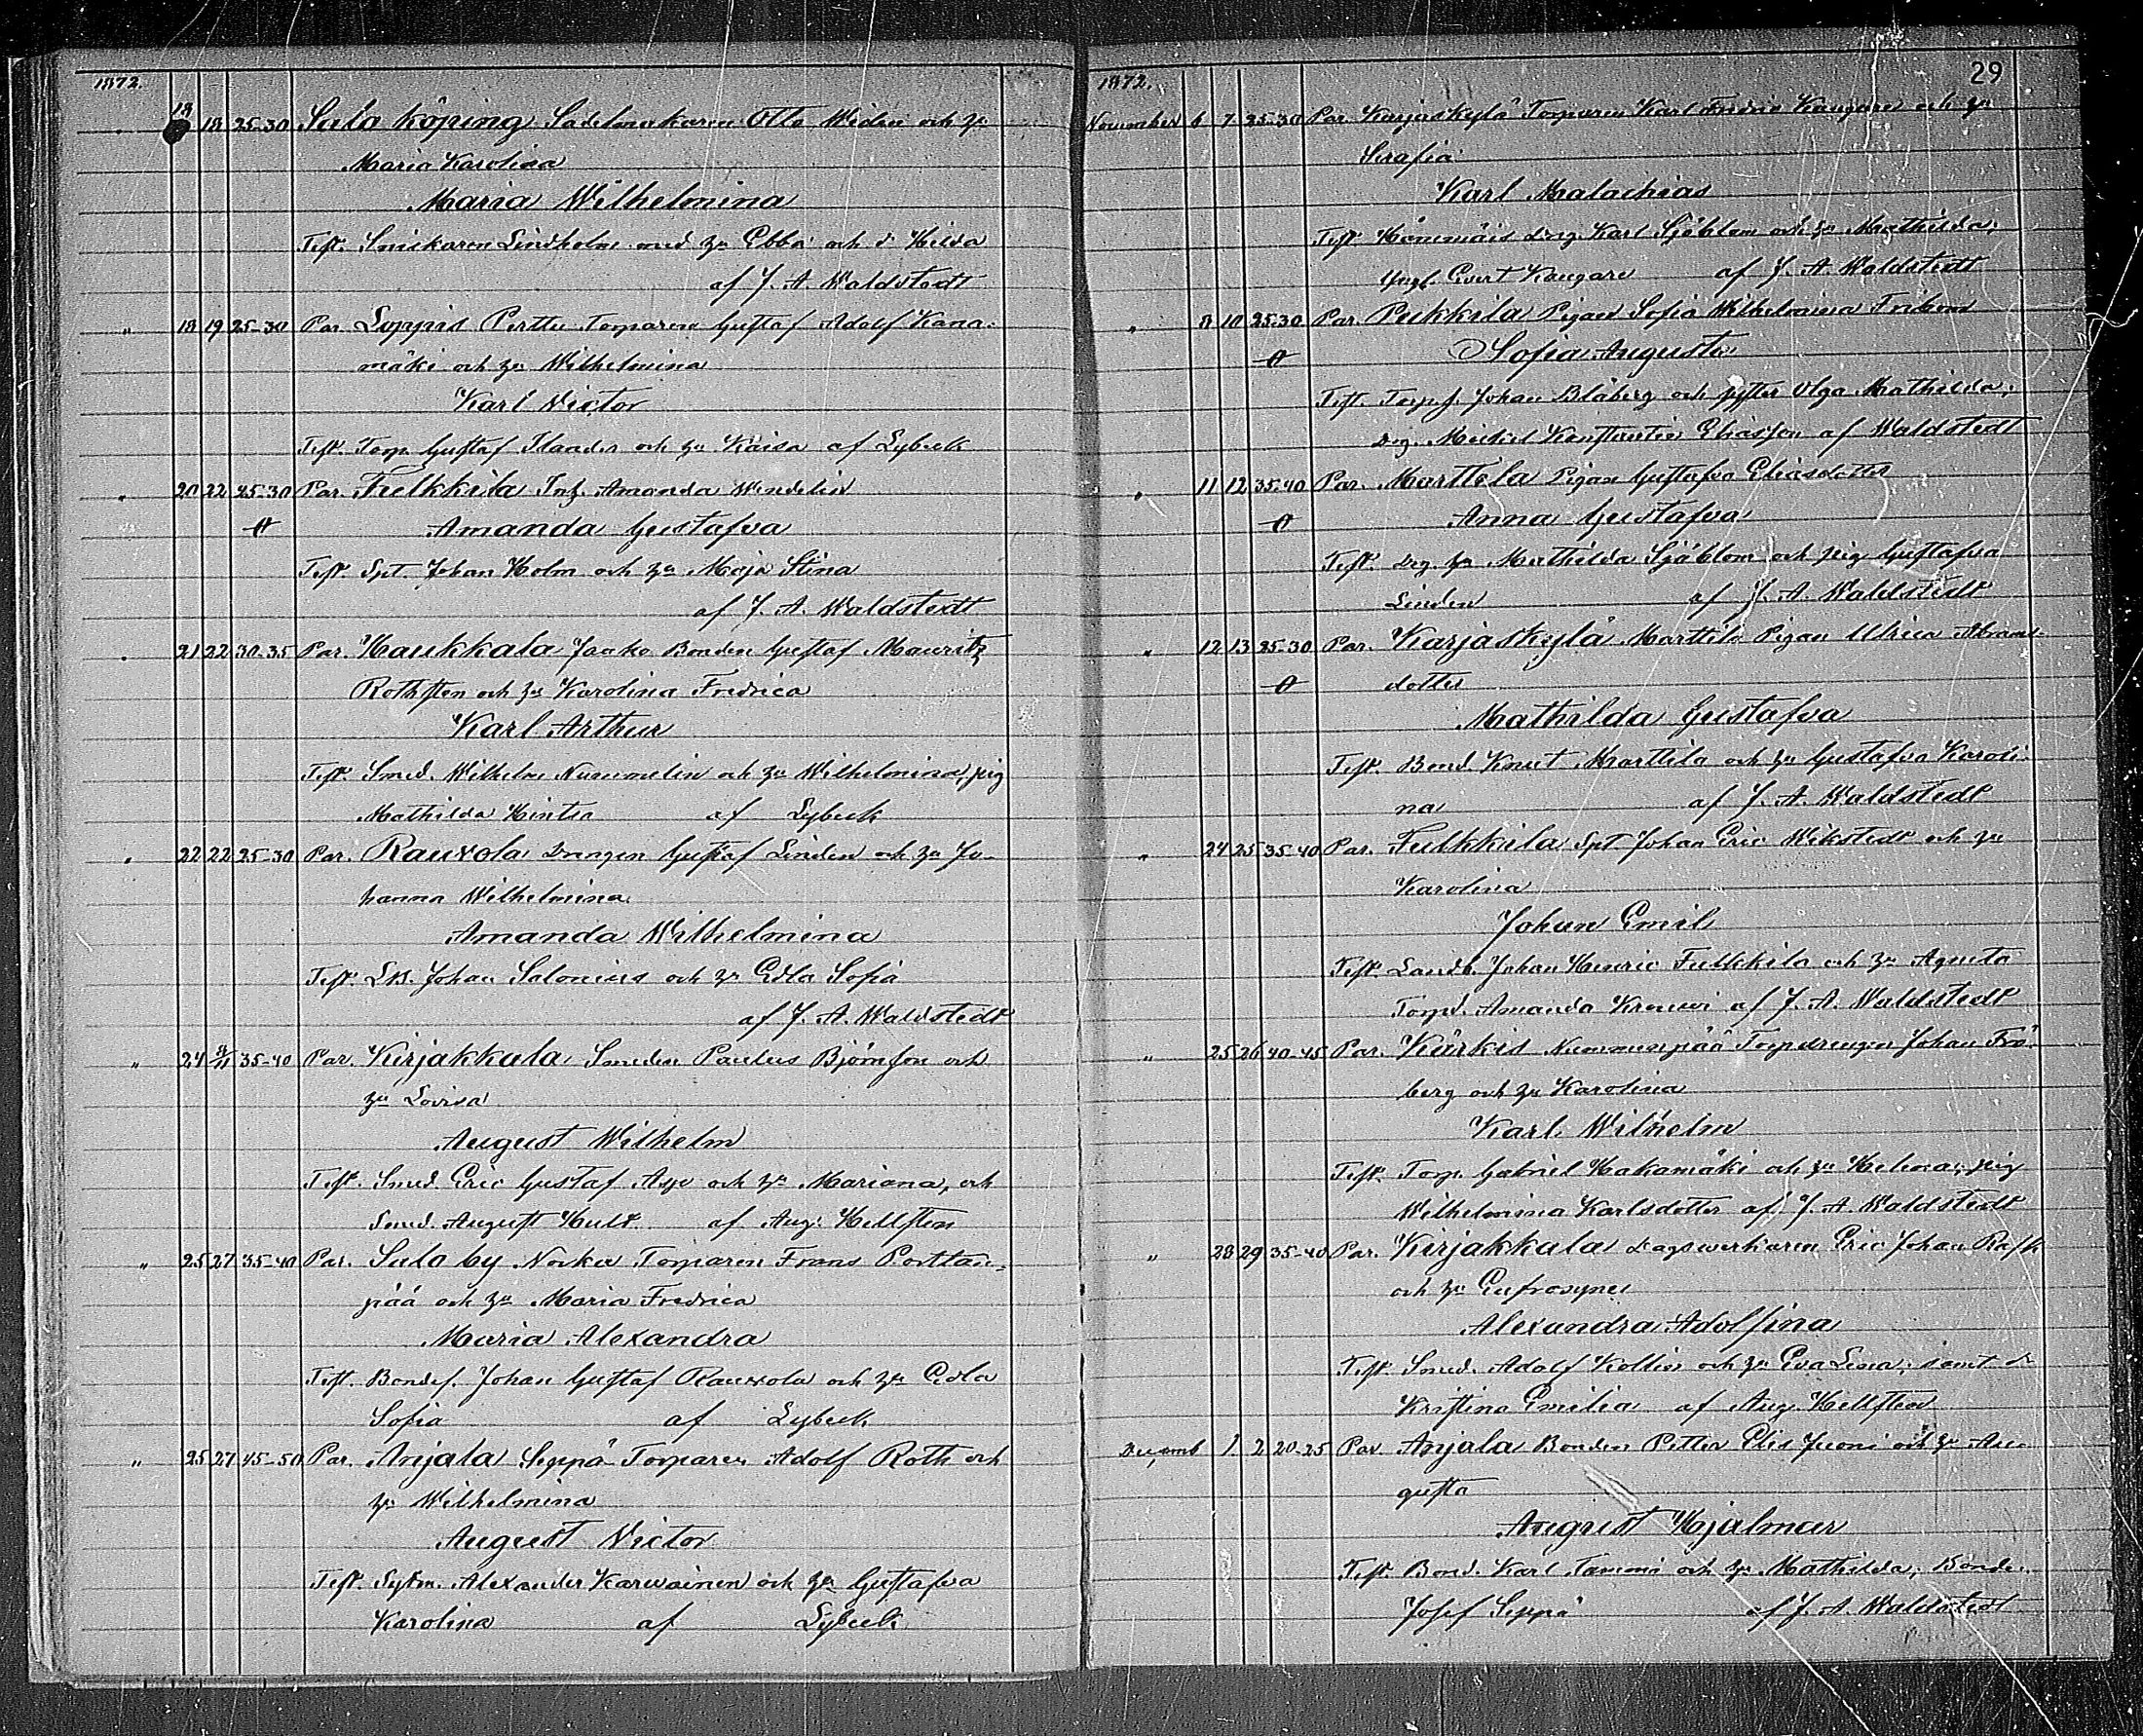 1872.
" 18 18 25-30 Salo köping Sadelmakaren Otto Widen och hu
Maria Karolina
Maria Wilhelmina
Test. Snickaren Lindholm med hu Ebba och d. Hilda
af J. A. Waldstedt
" 18 19 25-30 Par. Loppis Perttu Torparen Gustaf Adolf Kana-
mäki och hu Wilhelmina
Karl Victor
Test. Torp. Gustaf Ilander och hu Kaisa af Lybeck
" 20 22 25-30 Par. Fulkkila Inh. Amanda Wendelin
Amanda Gustafva
Test. Spt. Johan Holm och hu Maja Stina
af J. A. Waldstedt
" 21 22 30-35 Par. Haukkala Jaako Bonden Gustaf Mauritz
Rothsten och hu Karolina Fredrica
Karl Arthur
Test. Smed. Wilhelm Nummelin och hu Wilhelmina, pig
Mathilda Hintsa af Lybeck
" 22 22 25-30 Par. Rauvola Drengen Gustaf Linden och hu Jo-
hanna Wilhelmina
Amanda Wilhelmina
Test. LB. Johan Salonius och hu Edla Sofia
af J. A. Waldstedt
" 24 35-40 Par. Kirjakkala Smeden Paulus Björnsson och
hu Lovisa
August Wilhelm
Test. Smed. Eric Gustaf Asp och hu Mariana, och
Smed. August Hult af Aug. Hellsten
" 25 27 35-40 Par. Salo by Torparen Frans Porttan-
pää och hu Maria Fredrica
Maria Alexandra
Test. Bondes. Johan Gustaf Rauvola och hu Edla
Sofia af Lybeck
" 25 27 45-50 Par. Anjala Seppä Torparen Adolf Roth och
hu Wilhelmina
August Victor
Test. Sytm. Alexander Karvainen och hu Gustafva
Karolina af Lybeck
1872. 29
November 6 7 25-30 Par. Karjaskylä Torparen Karl Fredric Kangare och hu
Serafia
Karl Malachias
Test. Hämmäis dreg. Karl Sjöblom och hu Mathilda,
Yngl. Evert Kangare af J. A. Waldstedt
" 8 10 25-30 Par. Pukkila Pigan Sofia Wilhelmina Fribom
Sofia Augusta
Test. Torps. Johan Blåberg och syster Olga Mathilda,
drg. Mickel Konstantin Eliasson af Waldstedt
" 11 12 35-40 Par. Marttila Pigan Gustafva Eliasdotter
Anna Gustafva
Test. Drg. hu Mathilda Sjöblom och pig Gustafva
Linden af J. A. Waldstedt
" 12 13 25-30 Par. Karjaskylä Marttila Pigan Ulrica Abrams-
dotter
Mathilda Gustafva
Test. Bond. Knut Marttila och hu Gustafva Karoli-
na af J. A. Waldstedt
" 24 25 35-40 Par. Fulkkila Spt Johan Eric Wikstedt och hu
Karolina
Johan Emil
Test. Landb. Johan Henric Fulkkila och hu Agneta
Torpd. Amanda Krouvi af J. A. Waldstedt
" 25 26 40-45 Par. Kärkis Nummenpää Torpdrengen Johan Frö-
berg och hu Karolina
Karl Wilhelm
Test. Torp. Gabriel Hakamäki och hu Helena, pig
Wilhelmina Karlsdotter af J. A. Waldstedt
" 28 29 35-40 Par. Kirjakkala Dagsverkaren Eric Johan Rask
och hu Eufrosyne
Alexandra Adolfina
Test. Smed. Adolf Kollin och hu Eva Lena, samt d
Kristina Emilia af Aug. Hellsten
Decemb 1 2 20-25 Par Anjala Bonden Petter Elis Juoni och hu Au-
gusta
August Hjalmar
Test. Bond. Karl Tammi och hu Mathilda, Bonde
Josef Seppä af J. A. Waldstedt